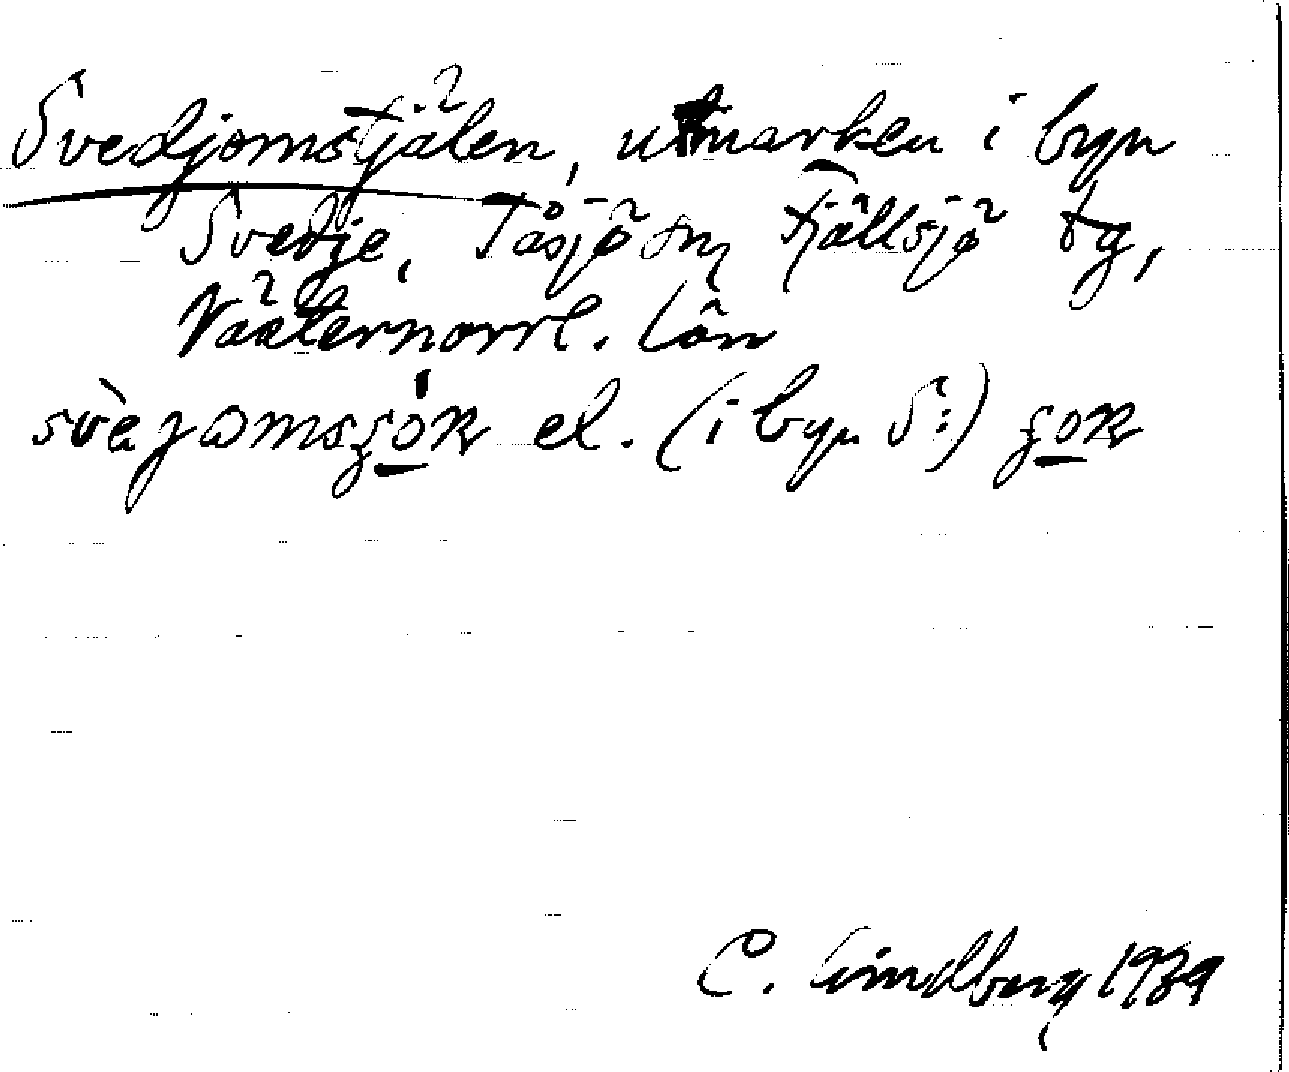 Svedjomstjälen, utmarken i byn
Svedje, Tåsjö sn, Fjällsjö tg,
Västernorrl. län
el. (i byn S:)
C. Lindberg 1939